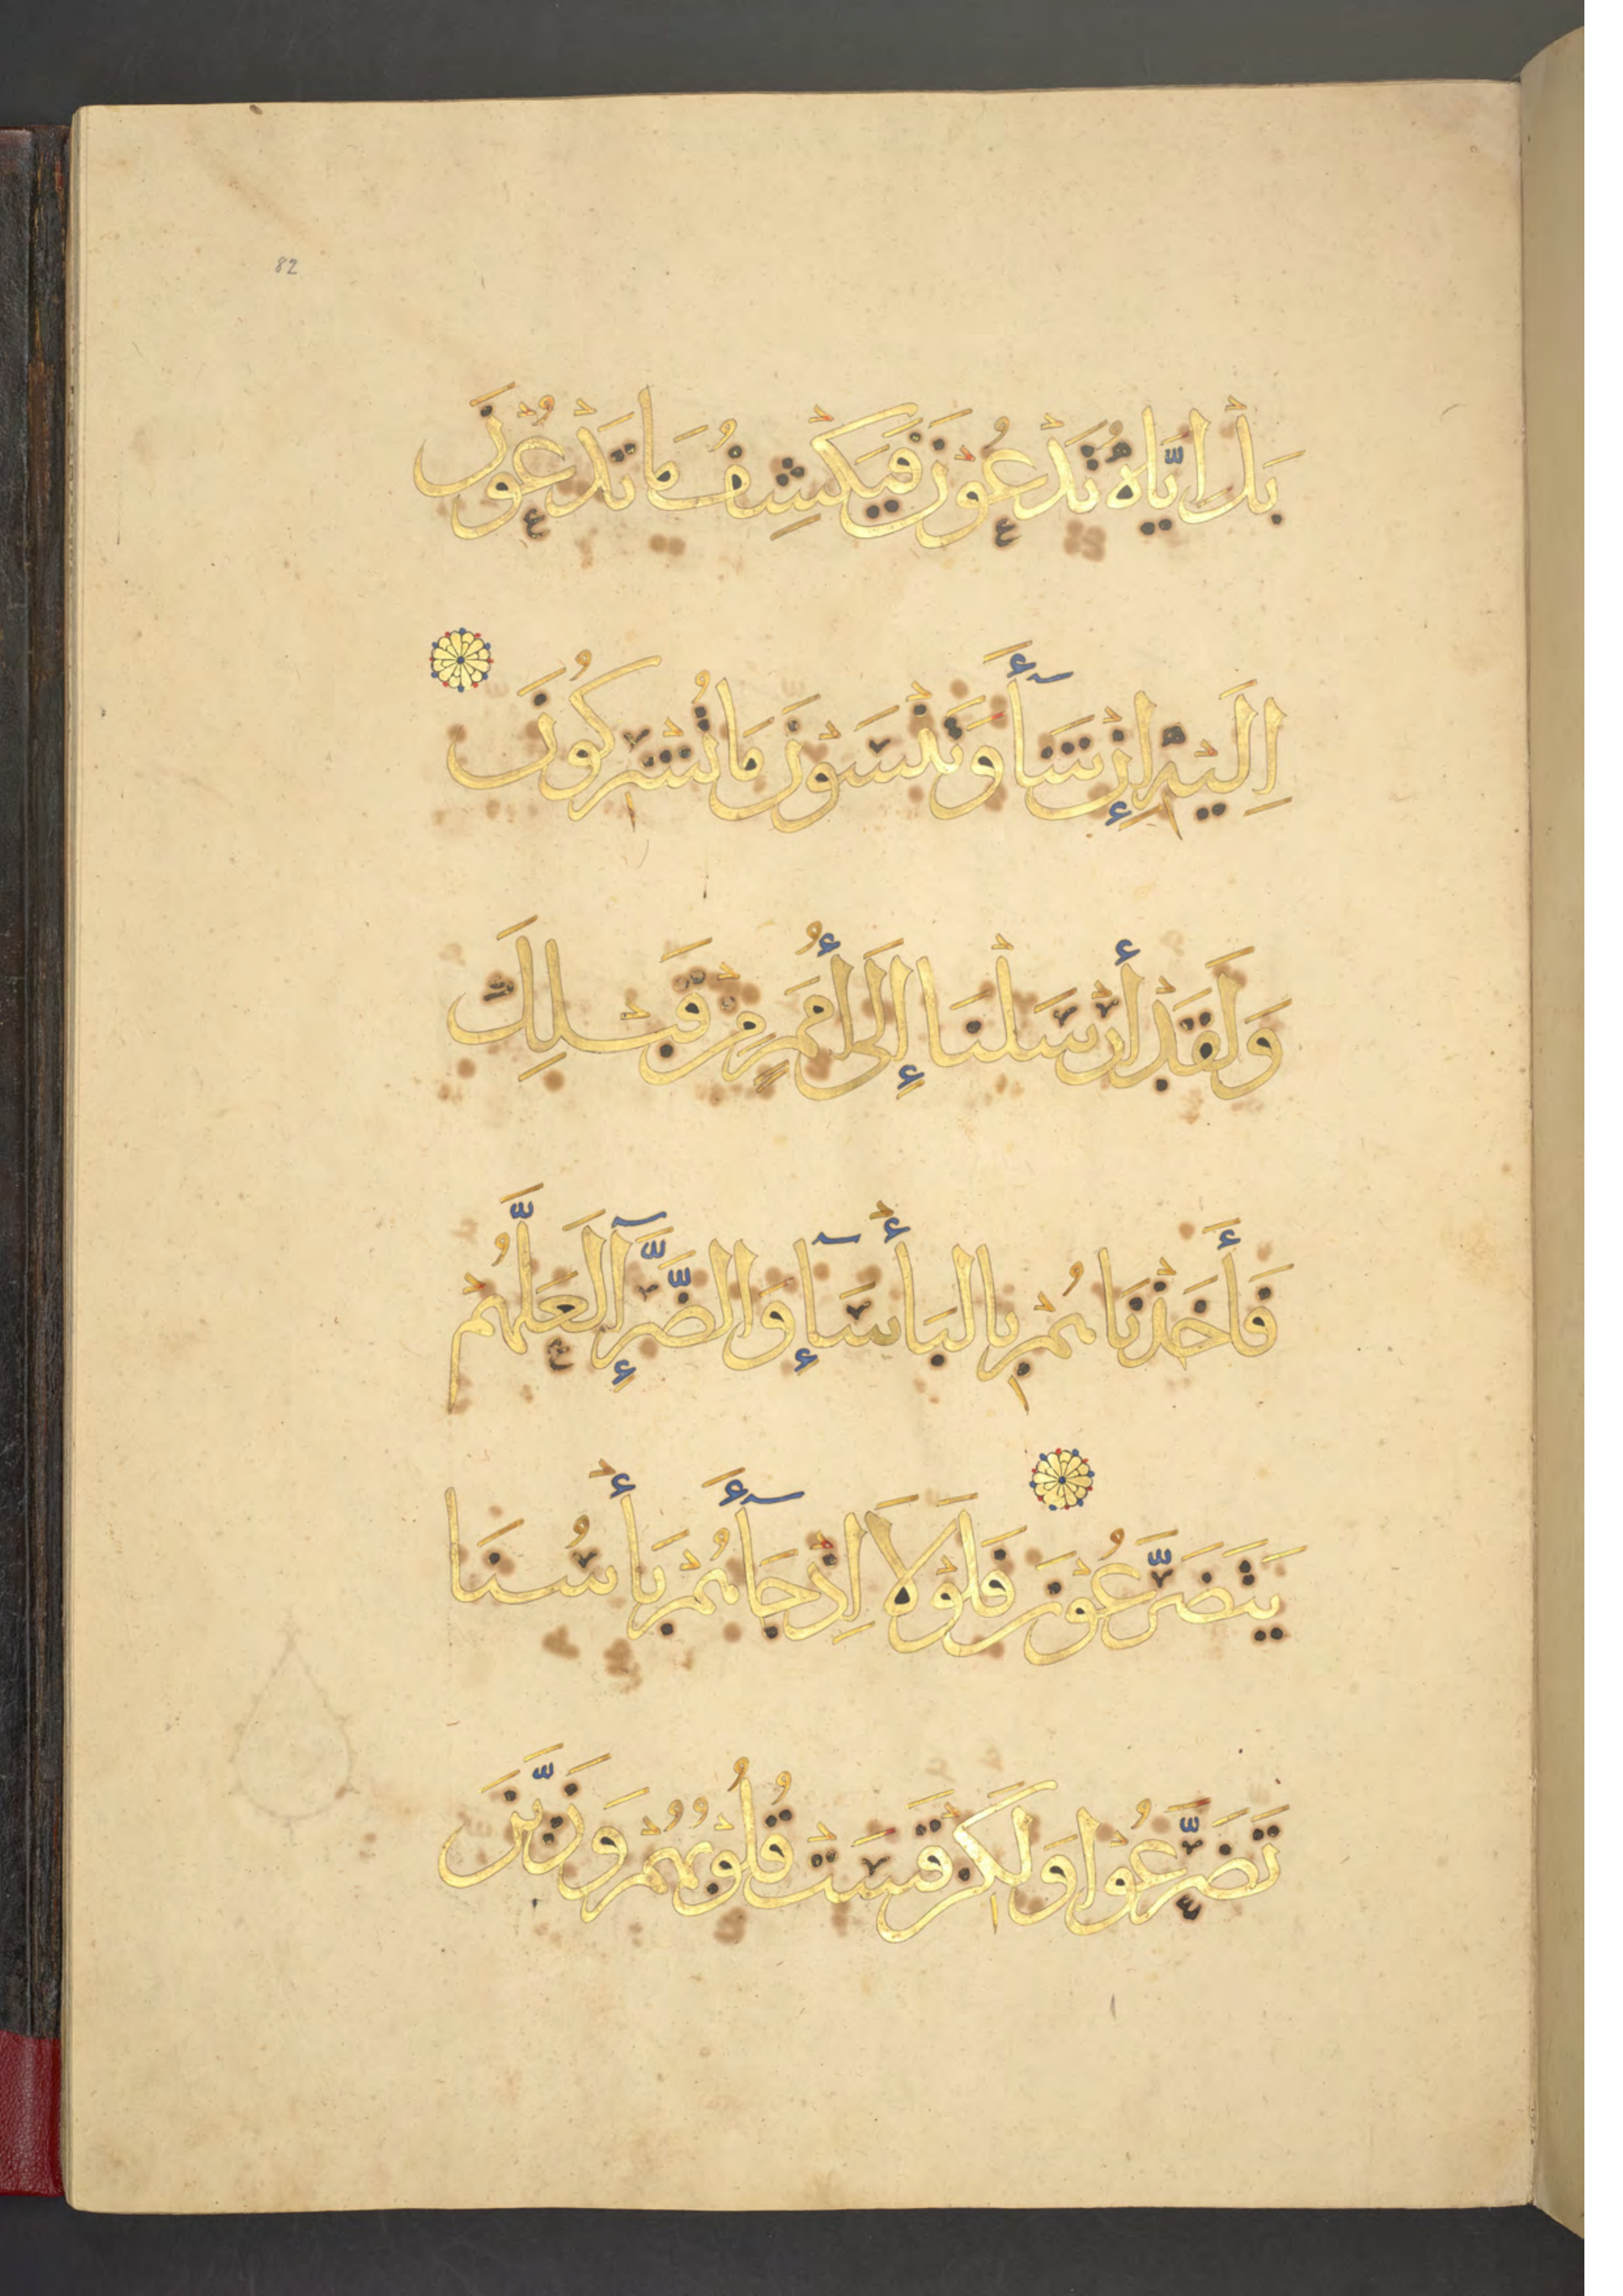 82
بَلْ اِيَّاهُ تَدْعُوْنَ فَيَكْشِفُ مَا تَدْعُوْنَ
اِلَيْهِ اِنْ شَآءَ وَتَنْسَوْنَ مَا تُشْرِكُوْنَ
وَلَقَدْ أَرْسَلْنَا إِلَى أُمَمٍ مِنْ قَبْلِكَ
فَأَخَذْنَاهُمْ بِالبَأْسَآءِ وَالضَّرَّآءِ لَعَلَّهُمْ
يَتَضَرَّعُوْنَ فَلَوْلَا اِذْ جَآءَهُمْ بَأْسُنَا
تَضَرَّعُوْا وَلَكِنْ قَسَتْ قُلُوْبُهُمْ وَزَيَّنَ